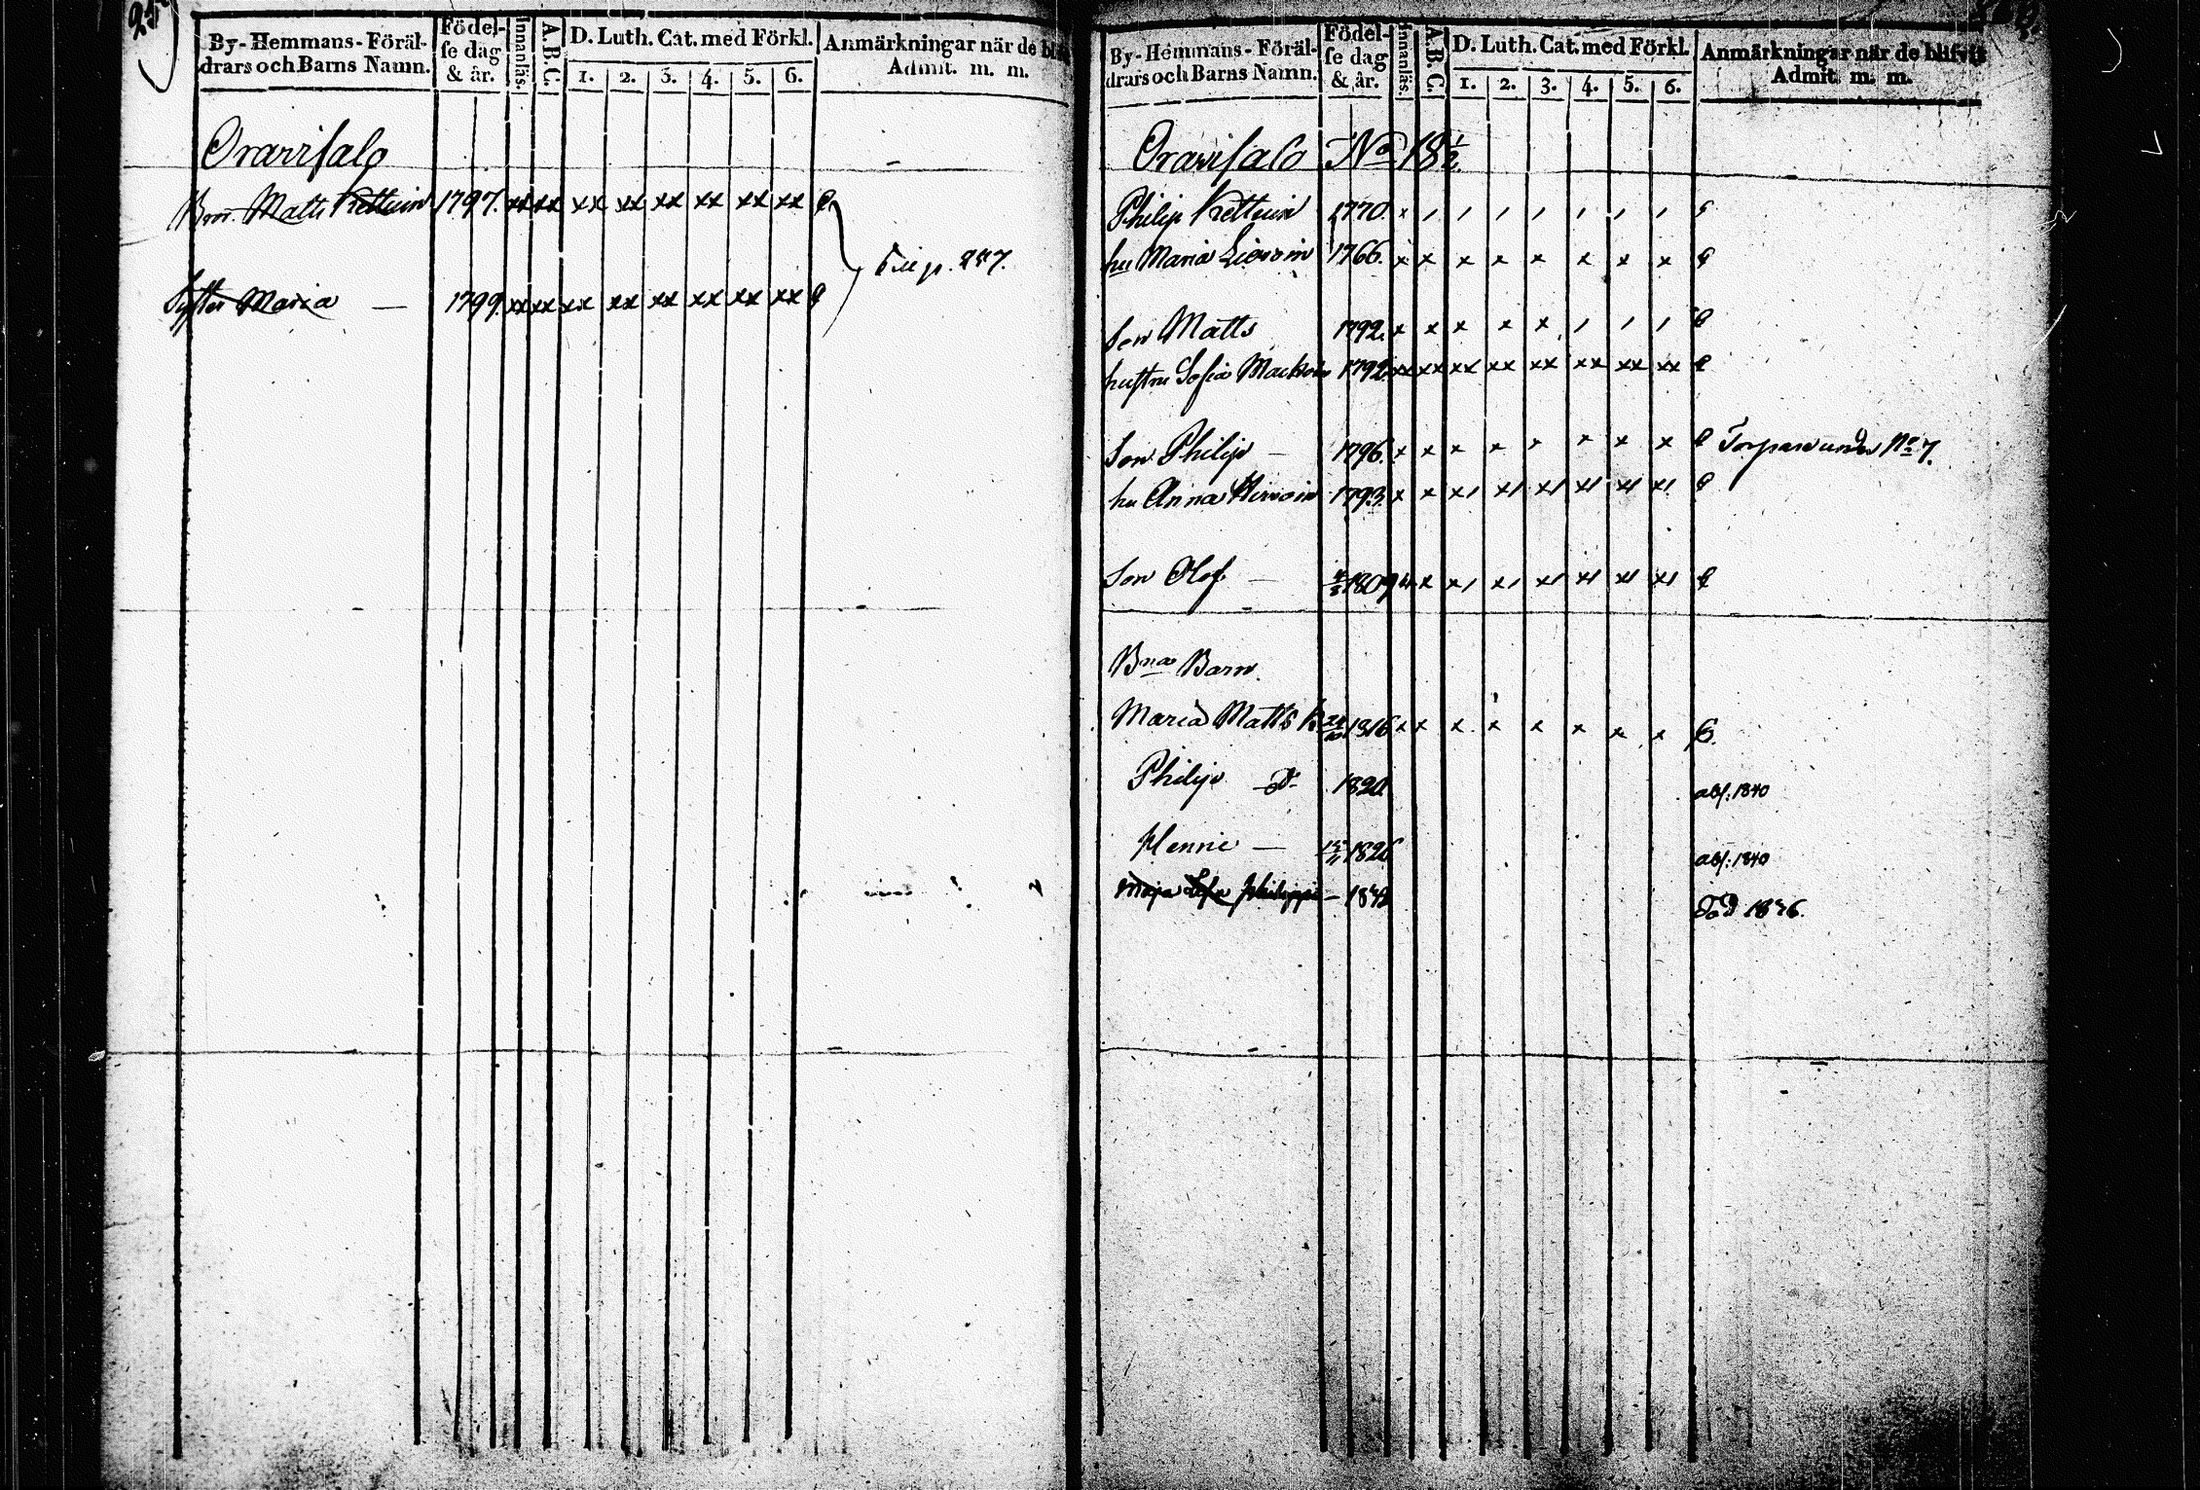 By-Hemmans-Föräl-
drars och Barns Namn.
Födel-
se dag
& år.
Innanläs.
A.B.C.
D. Luth. Cat. med Förkl.
1. 2. 3. 4. 5. 6.
Anmärkningar när de
Admit. m. m.
Oravisalo
Matts Kettuin 1797. xx xx xx xx xx xx xx xx
Syster Maria — 1799 xx xx xx xx xx xx xx xx
By-Hemmans-Föräl-
drars och Barns Namn.
Födel-
se dag
& år.
Innanläs.
A.B.C.
D. Luth. Cat. med Förkl.
1. 2. 3. 4. 5. 6.
Anmärkningar när de blifvit
Admit. m. m.
Oravisalo No 18 1/2.
Philip Kettuin 1770.
hu Maria 1766. x x x x x x x x
Son Matts 1792. x x x x x
hustru Sofia 1792. xx xx xx xx xx xx xx xx
Son Philip — 1796. x x x x x x x x Torpare under No 7.
hu Anna Hirvoin 1793. x x
Son Olof — 1809
Bna Barn.
Maria Matts K. 1816 x x x x x x x x
Philip Do 1820 abs. 1840
Henric — 1826 abs. 1840
Maja Philippi —
Död 1836.